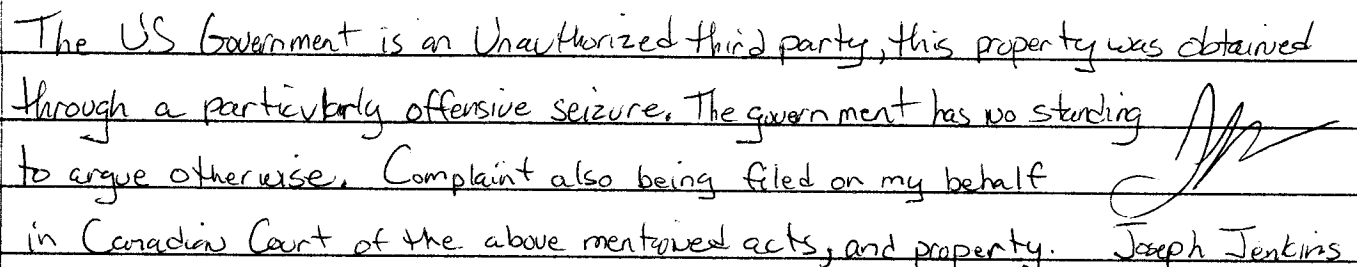 The US Government is an Unauthorized third party, this property was obtained
through a particularly offensive seizure. The government has no standing
to argue otherwise. Complaint also being filed on my behalf
in Canadian Court of the above mentioned acts, and property. Joseph Jenkins